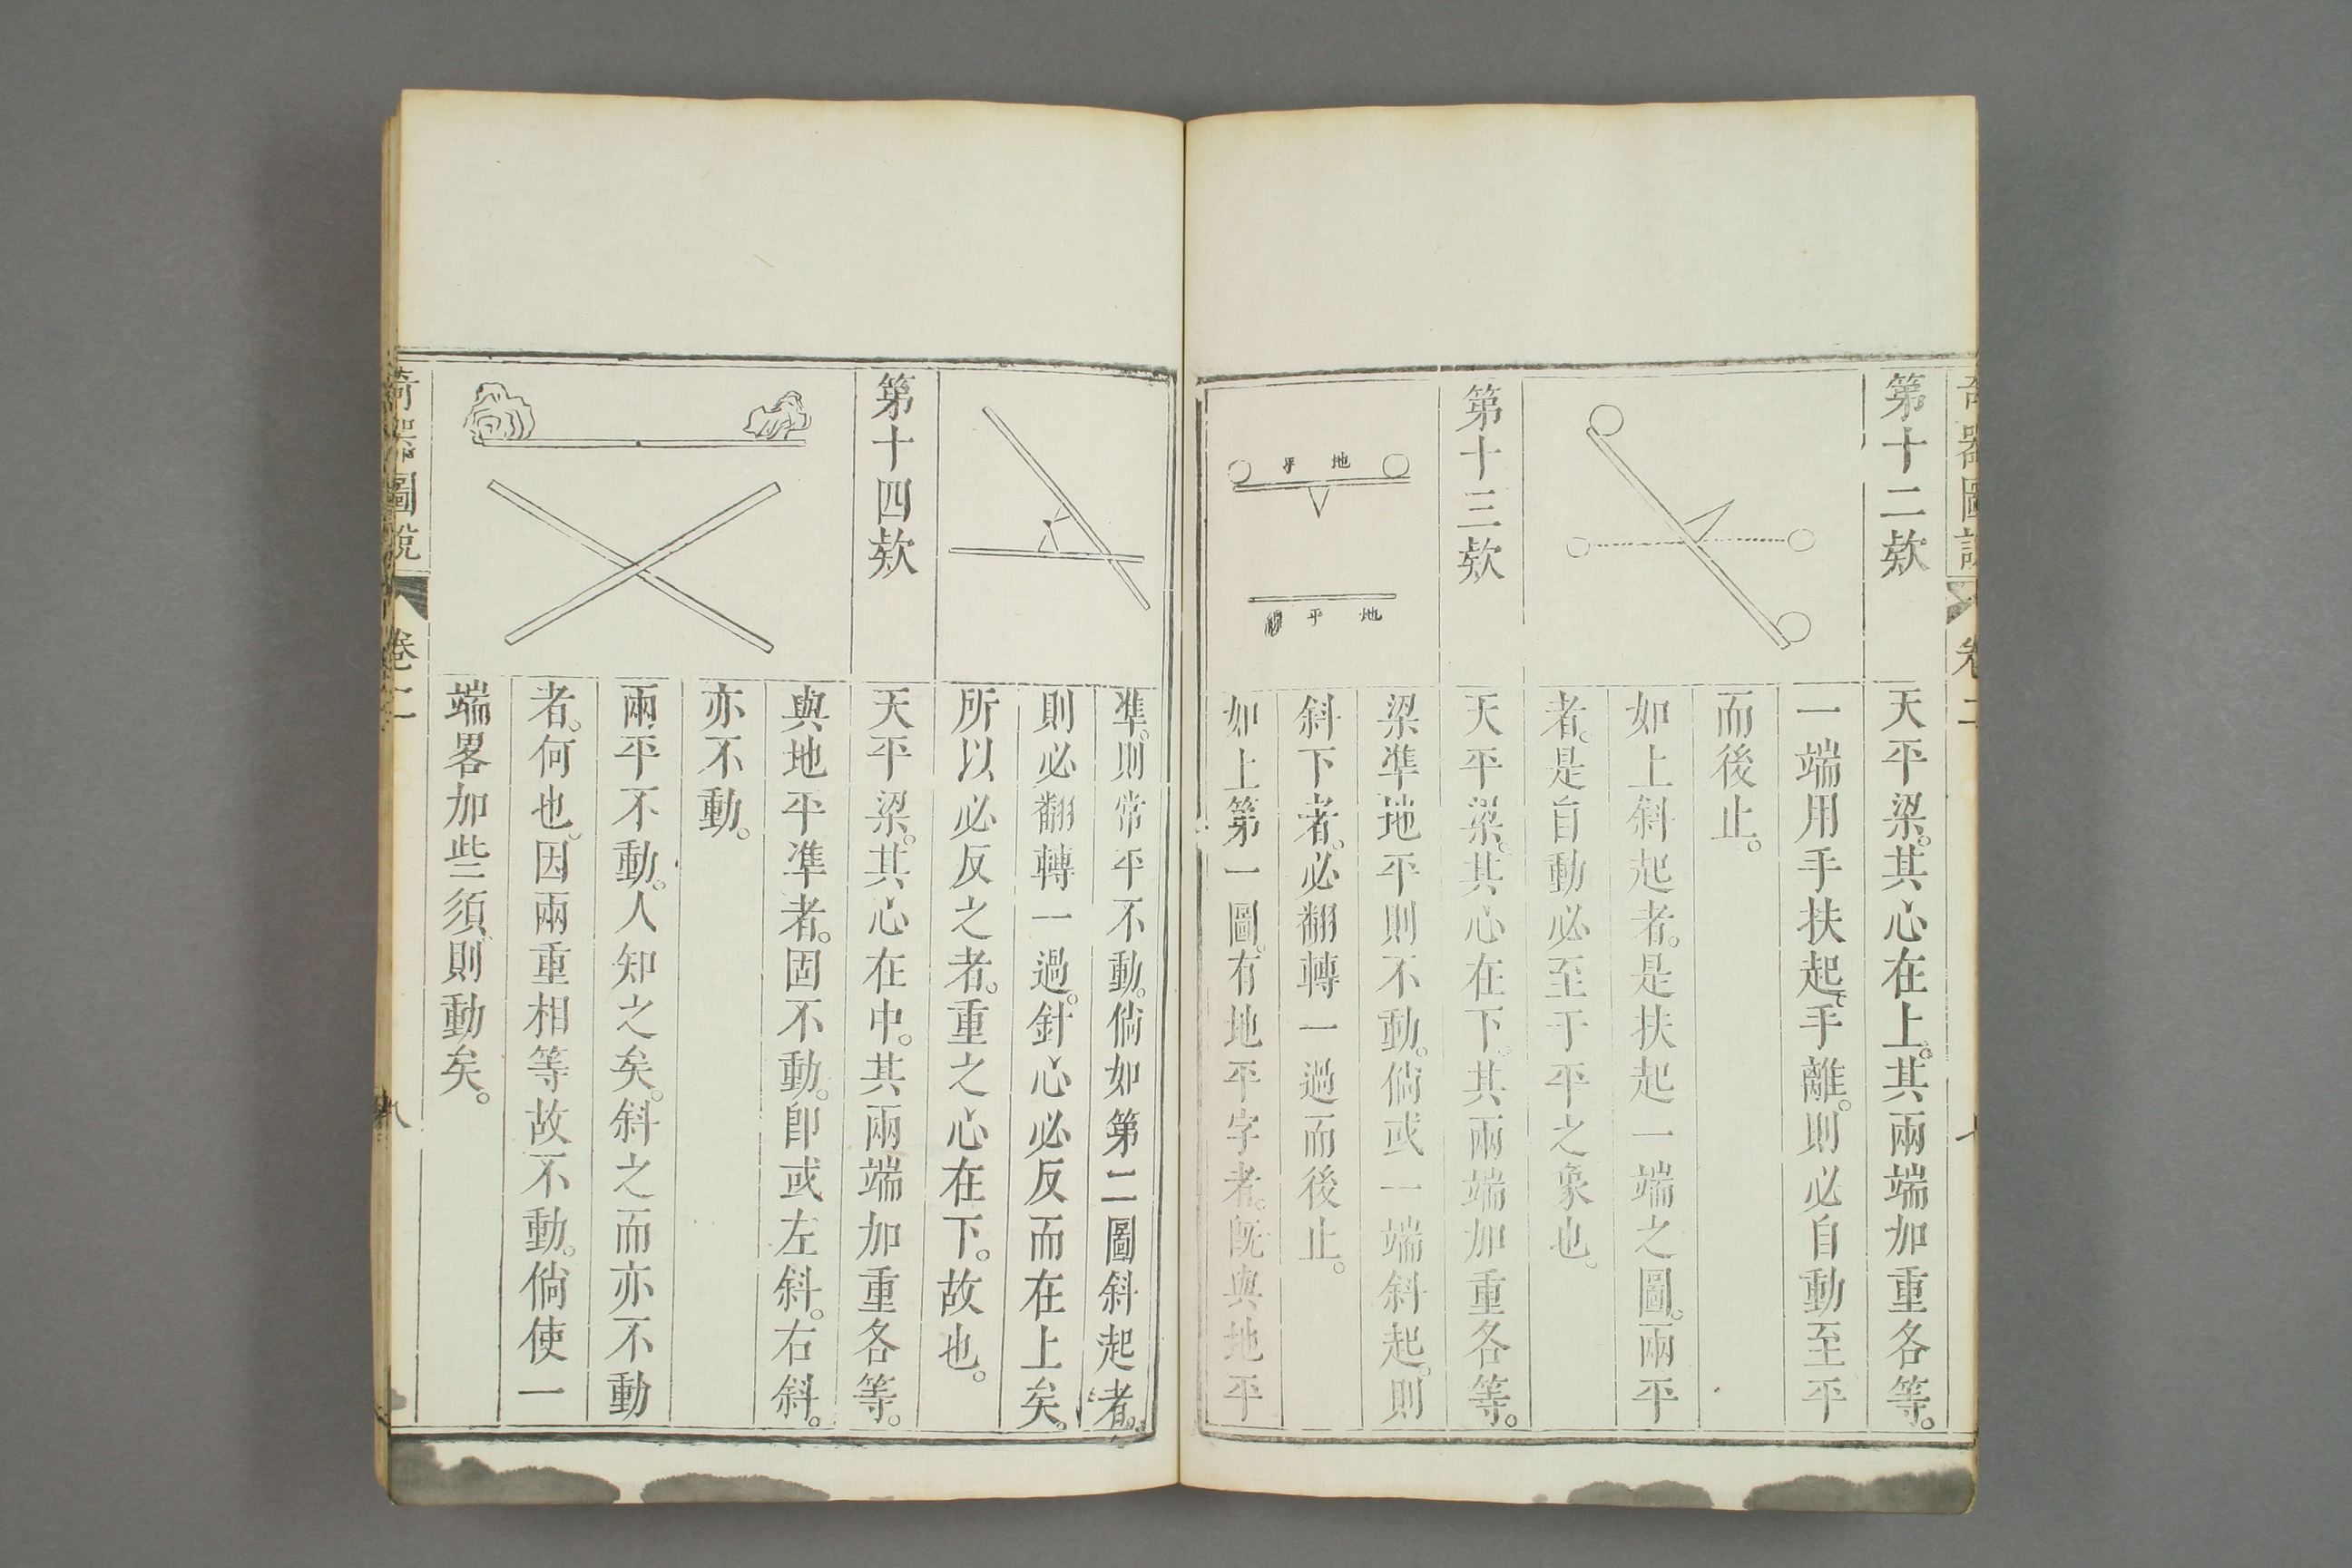 奇器圖說
卷二
第十二欵
天平梁其心在上其兩端加重各等
一端用手扶起手離則必自動至平
而後止
如上斜起者是扶起一端之圖兩平
者是自動必至于平之象也
第十三欵
天平梁其心在下其兩端加重各等
梁準地平則不動倘或一端斜起則
斜下者必翻轉一過而後止
如上第一圖有地平字者旣與地平
地平
地平
準則常平不動倘如第二圖斜起者
則必翻轉一過針心必反而在上矣
所以必反之者重之心在下故也
第十四欵
天平梁其心在中其兩端加重各等
與地平準者固不動卽或左斜右斜
亦不動
兩平不動人知之矣斜之而亦不動
者何也因兩重相等故不動倘使一
端畧加些須則動矣
奇器圖說
卷二
八